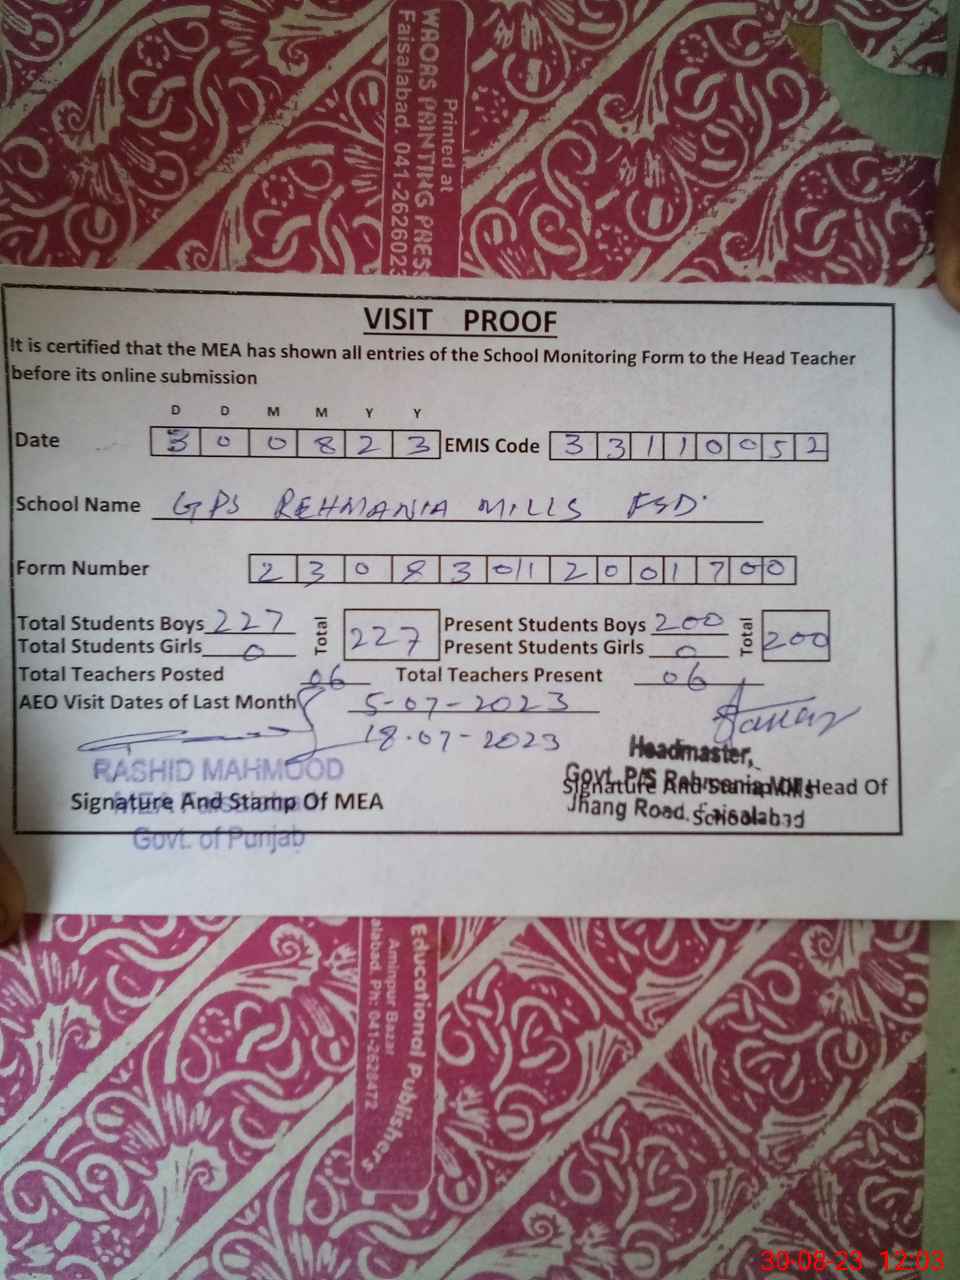 Printed at
WAQRS PRINTING PRESS
Faisalabad. 041-262602
VISIT PROOF
It is certified that the MEA has shown all entries of the School Monitoring Form to the Head Teacher
before its online submission
D D M M Y Y
Date 3 0 0 8 2 3 EMIS Code 3 3 1 1 0 0 5 2
School Name GPS REHMANIA MILLS FSD.
Form Number 2 3 0 8 3 0 1 2 0 0 1 7 0 0
Total Students Boys 227 Total 227 Present Students Boys 200 Total 200
Total Students Girls 0 Present Students Girls 0
Total Teachers Posted 06 Total Teachers Present 06
AEO Visit Dates of Last Month 5-07-2023
18-07-2023
RASHID MAHMOOD
Signature And Stamp Of MEA
Govt. of Punjab
Headmaster,
Govt. P/S Rehmania Mills
Signature And Stamp Of Head Of
Jhang Road, Faisalabad
School
Educational Publishers
Aminpur Bazar
alabad. Ph: 041-2628472
30-08-23 12:03